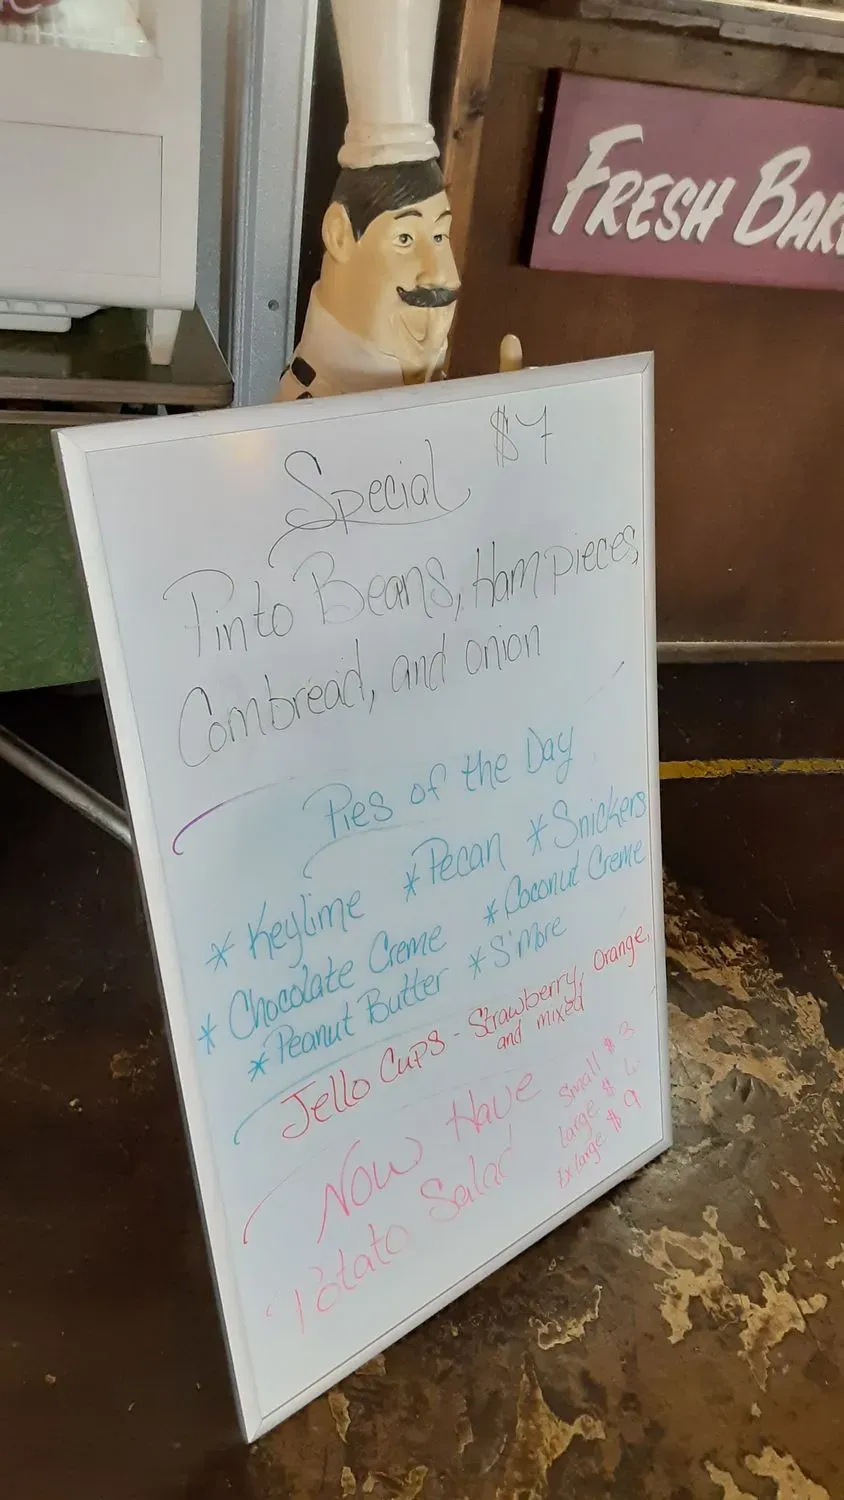 FRESH BAK
Special $7
Pinto Beans, Ham pieces,
Cornbread, and onion
Pies of the Day
* Keylime * Pecan * Snickers
* Chocolate Creme * Coconut Creme
* Peanut Butter * S'More
Jello Cups - Strawberry, Orange,
and mixed
Now Have
Potato Salad
Small $3
large $
Ex large $9